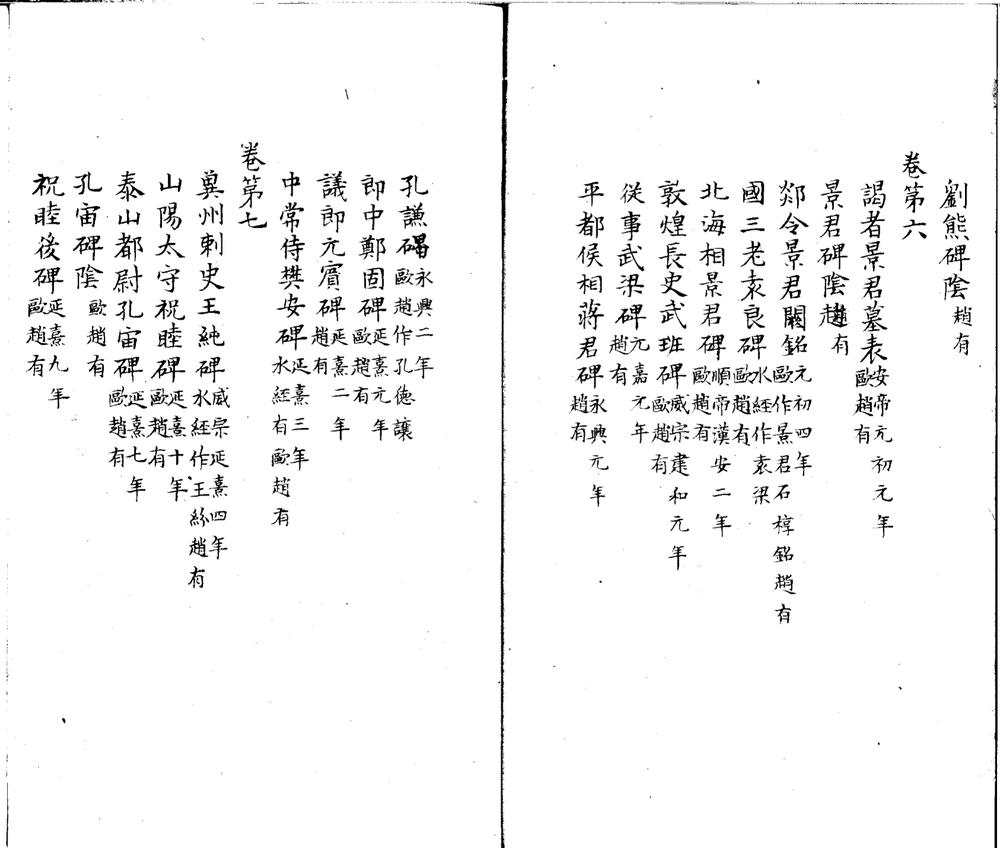 劉熊碑陰趙有
卷第六
謁者景君墓表安帝元初元年歐趙有
景君碑陰趙有
郯令景君闕銘元初四年歐作景君石椁銘趙有
國三老袁良碑水經作袁梁歐趙有
北海相景君碑順帝漢安二年歐趙有
敦煌長史武班碑威宗建和元年歐趙有
從事武梁碑元嘉元年趙有
平都侯相蔣君碑永興元年趙有
孔謙碣永興二年歐趙作孔德讓
郎中鄭固碑延熹元年歐趙有
議郎元賓碑延熹二年趙有
中常侍樊安碑延熹三年水經有歐趙有
卷第七
冀州刺史王純碑威宗延熹四年水經作王紛趙有
山陽太守祝睦碑延熹十年歐趙有
泰山都尉孔宙碑延熹七年歐趙有
孔宙碑陰歐趙有
祝睦後碑延熹九年歐趙有